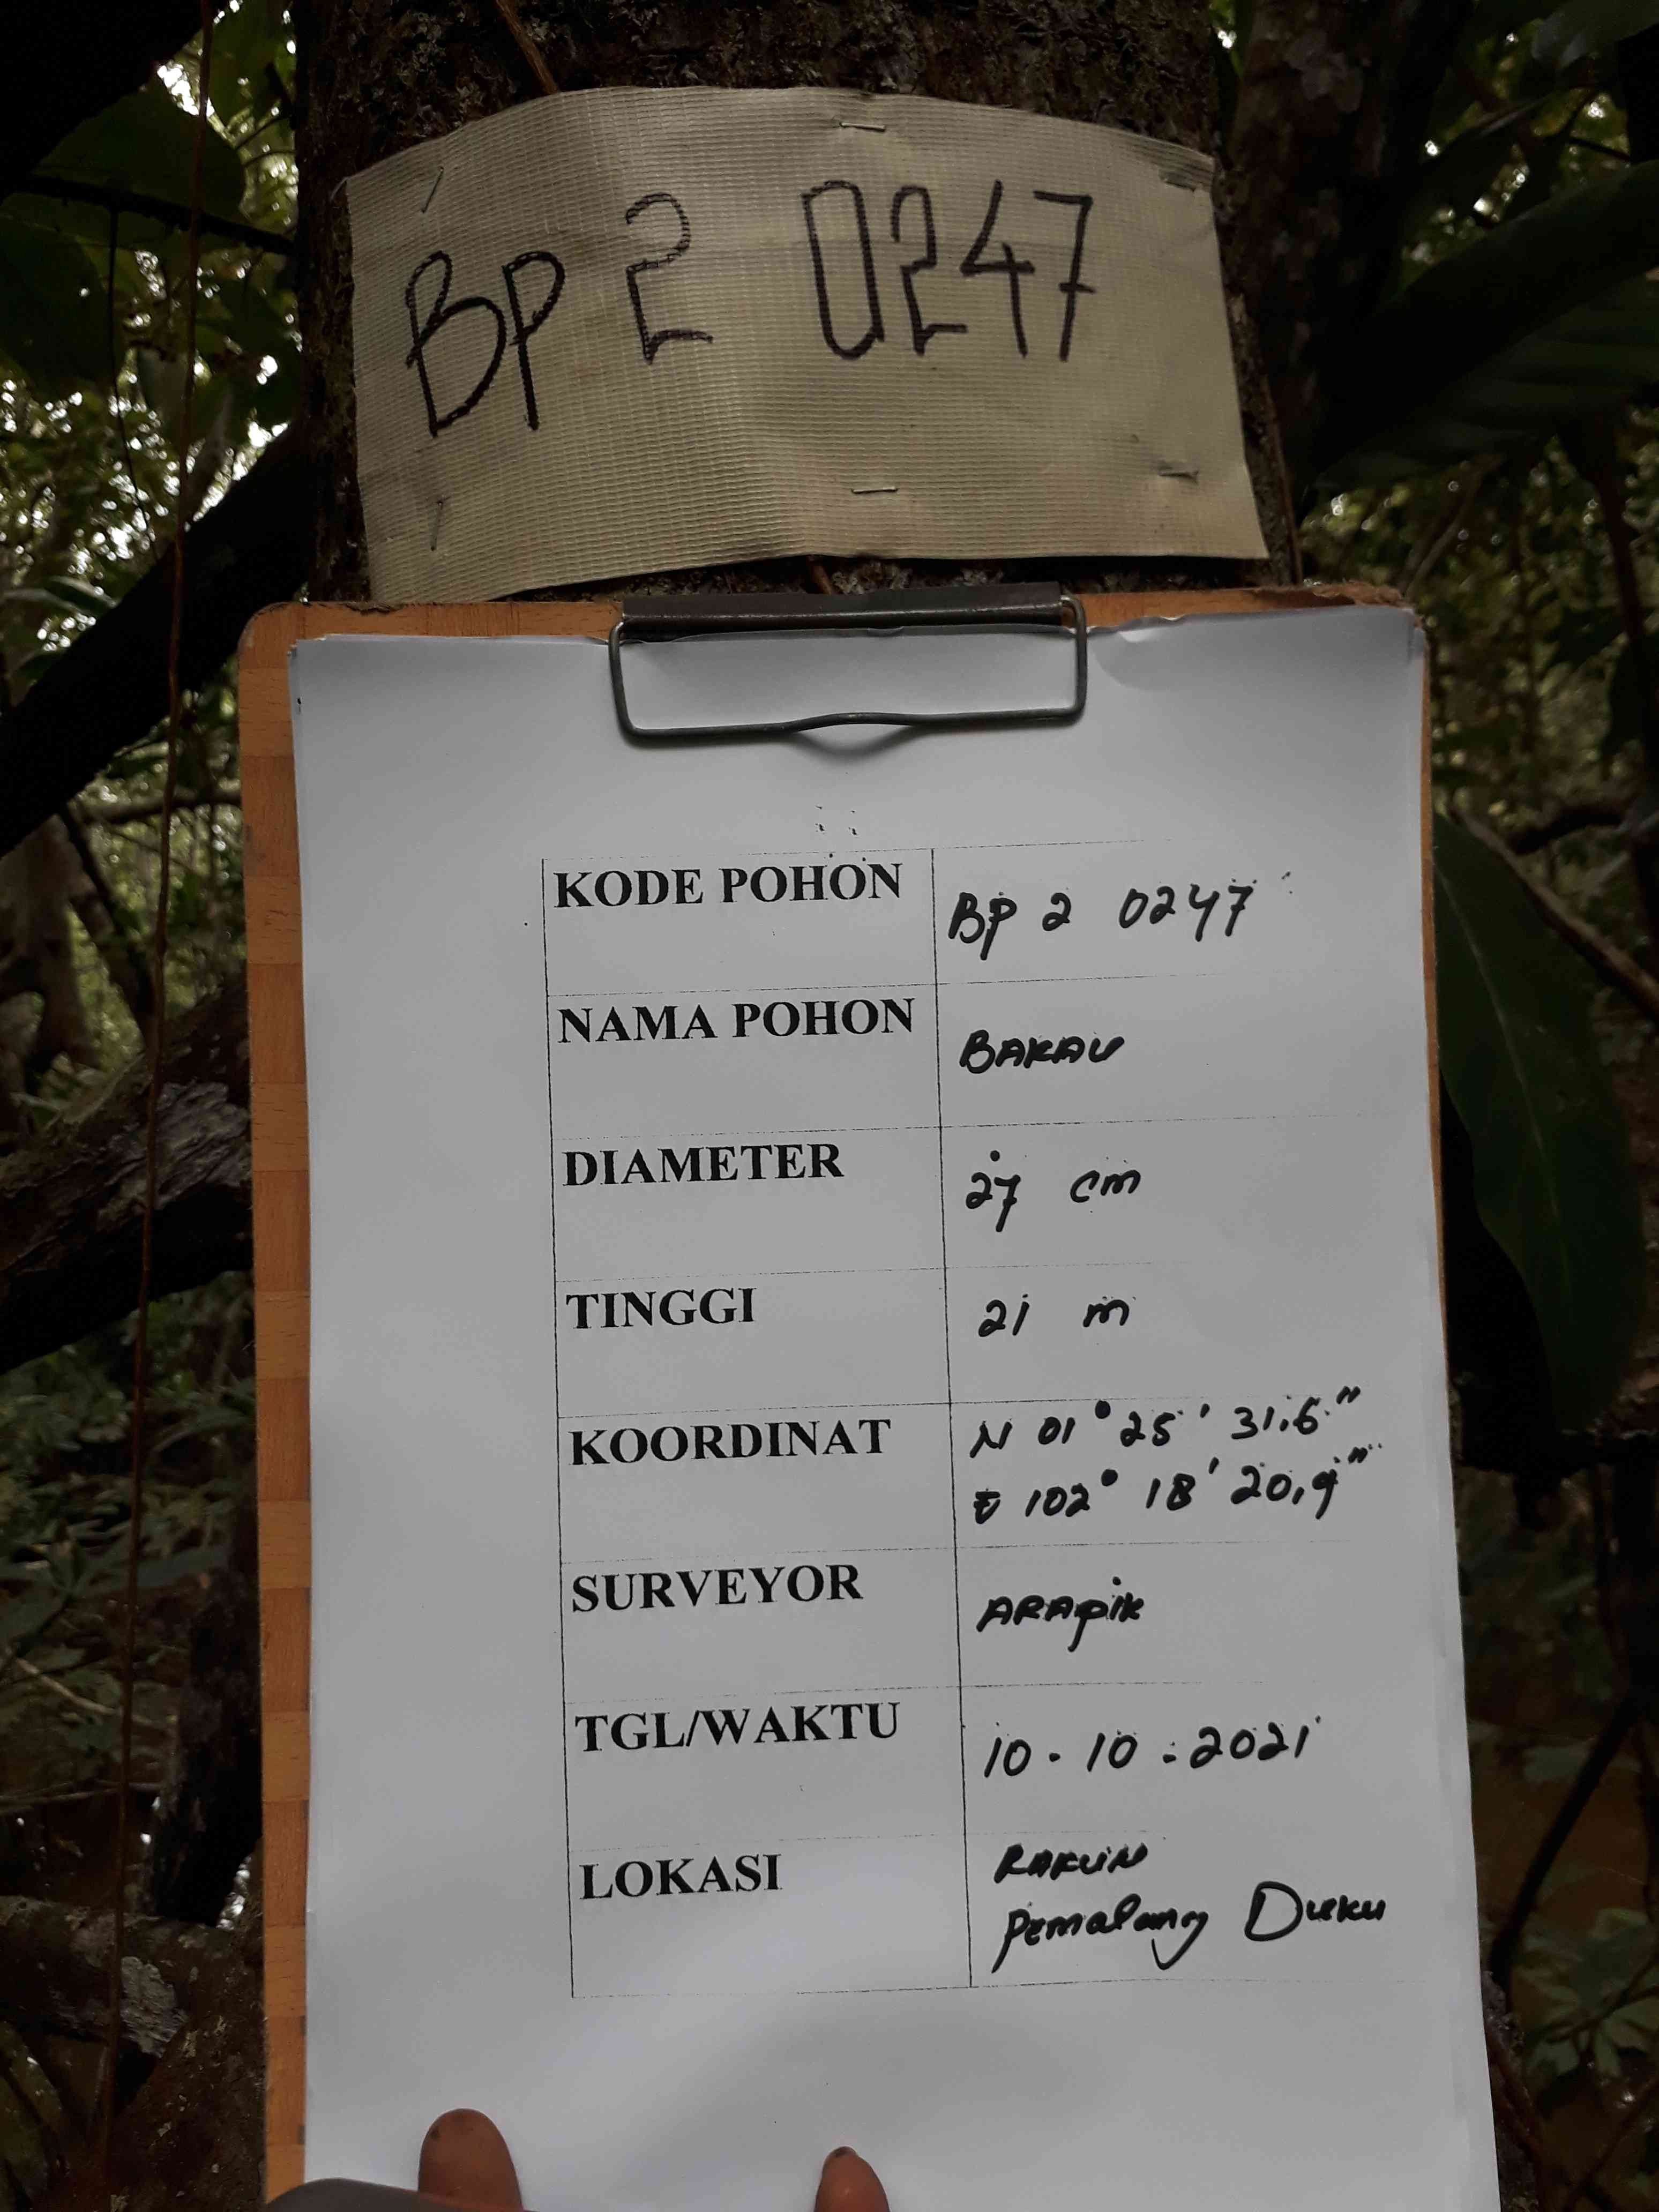 BP 2 0247
KODE POHON BP 2 0247
NAMA POHON BAKAU
DIAMETER 27 cm
TINGGI 21 m
KOORDINAT N 01° 25' 31.6"
E 102° 18' 20,9"
SURVEYOR ARAPIK
TGL/WAKTU 10 - 10 - 2021
LOKASI
Pemalang Duku